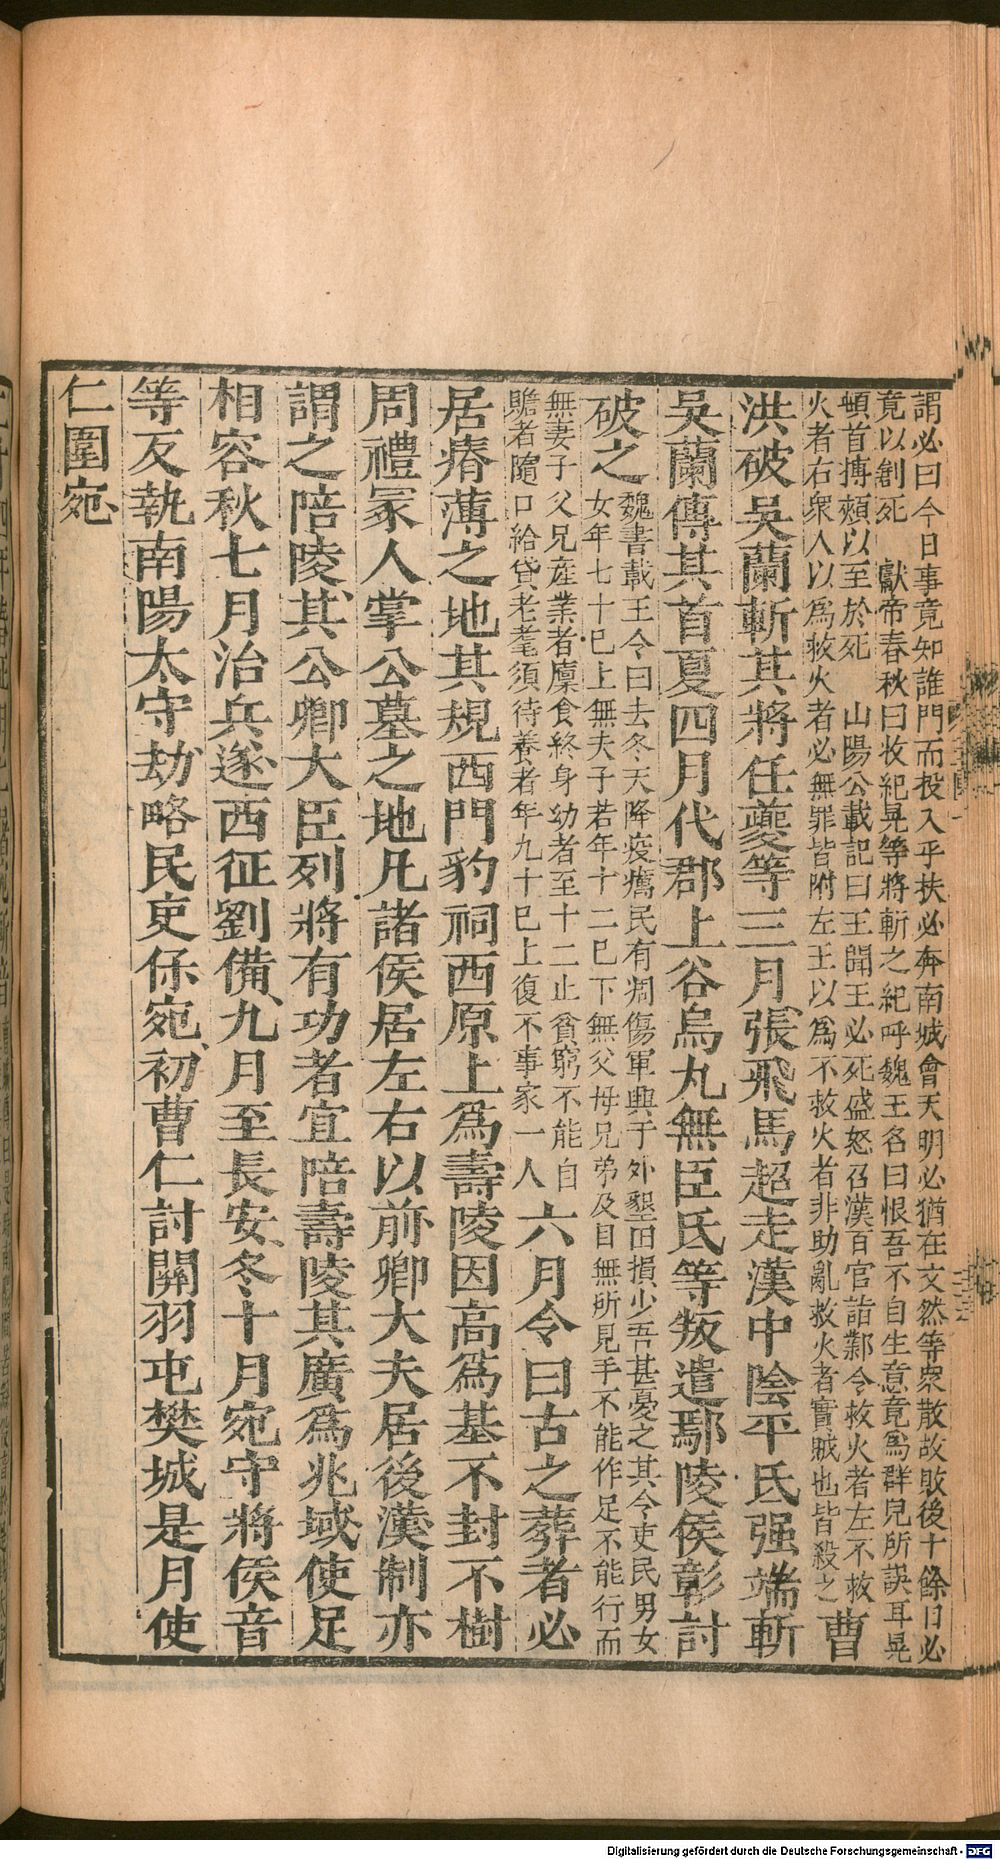 謂必曰今日事竟知誰門而投入乎扶必奔南城會天明必猶在文然等衆散故敗後十餘日必
竟以創死 獻帝春秋曰收紀晃等將斬之紀呼魏王名曰恨吾不自生意竟爲群兒所誤耳晃
頓首搏頰以至於死 山陽公載記曰王聞王必死盛怒召漢百官詣鄴令救火者左不救
火者右衆人以爲救火者必無罪皆附左王以爲不救火者非助亂救火者實賊也皆殺之 曹
洪破吳蘭斬其將任夔等三月張飛馬超走漢中陰平氐强端斬
吳蘭傳其首夏四月代郡上谷烏丸無臣氐等叛遣鄢陵侯彰討
破之 魏書載王令曰去冬天降疫癘民有凋傷軍興于外墾田損少吾甚憂之其令吏民男女
女年七十已上無夫子若年十二已下無父母兄弟及目無所見手不能作足不能行而
無妻子父兄産業者廩食終身幼者至十二止貧窮不能自
贍者隨口給貸老耄須待養者年九十已上復不事家一人 六月令曰古之葬者必
居瘠薄之地其規西門豹祠西原上爲壽陵因高爲基不封不樹
周禮冢人掌公墓之地凡諸侯居左右以前卿大夫居後漢制亦
謂之陪陵其公卿大臣列將有功者宜陪壽陵其廣爲兆域使足
相容秋七月治兵遂西征劉備九月至長安冬十月宛守將侯音
等反執南陽太守劫略民吏保宛初曹仁討關羽屯樊城是月使
仁圍宛
Digitalisierung gefördert durch die Deutsche Forschungsgemeinschaft - DFG